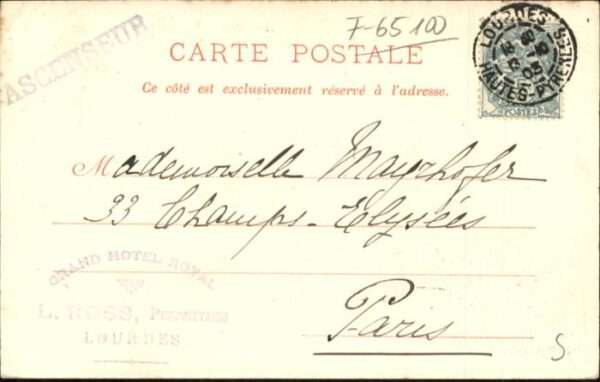 7-65100
ASCENSEUR
CARTE POSTALE
Ce côté est exclusivement réservé à l'adresse.
LOURDES
HAUTES-PYRÉNÉES
POSTES
Mademoiselle Mayrhofer
33 Champs-Elysées
Paris
GRAND HOTEL ROYAL
L. ROSS, Propriétaire
LOURDES
5